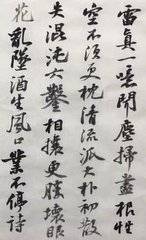 雷真一噫開塵掃盡根性
空不須更枕清流派大朴初散
失混沌六鑿相攘更勝壞眼
花亂墜酒生風口業不停詩